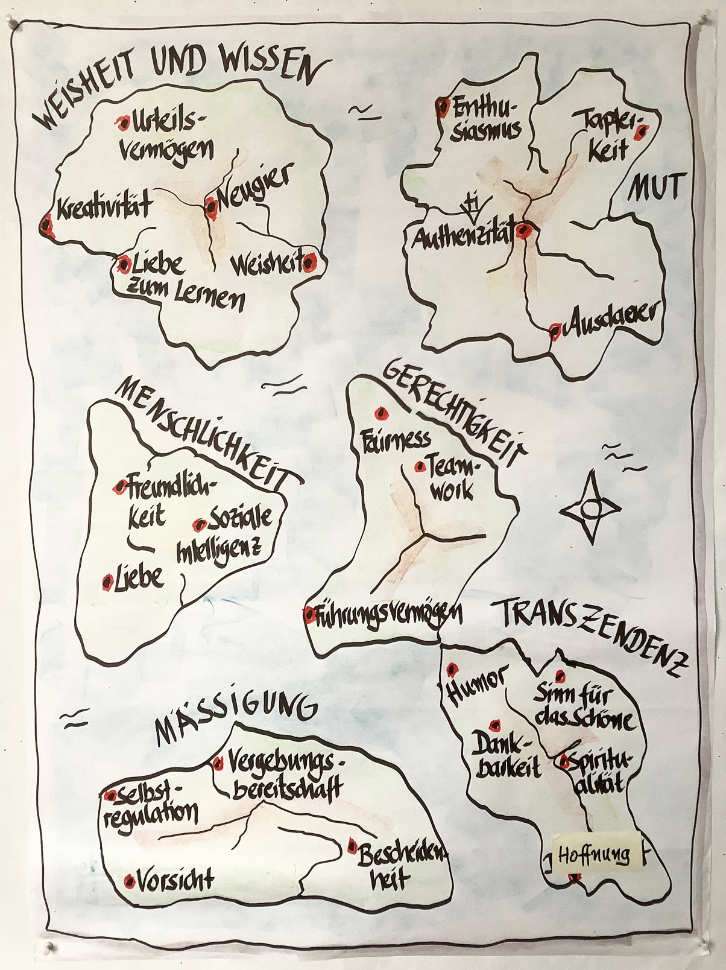 WEISHEIT UND WISSEN
Urteils-
vermögen
Kreativität
Neugier
Liebe
zum Lernen
Weisheit
MUT
Enthu-
siasmus
Tapfer-
keit
Authenzität
Ausdauer
MENSCHLICHKEIT
Freundlich-
keit
Soziale
Intelligenz
Liebe
GERECHTIGKEIT
Fairness
Team-
work
Führungsvermögen
TRANSZENDENZ
Humor
Sinn für
das Schöne
Dank-
barkeit
Spiritu-
alität
Hoffnung
MÄSSIGUNG
Selbst-
regulation
Vergebungs-
bereitschaft
Vorsicht
Bescheiden-
heit